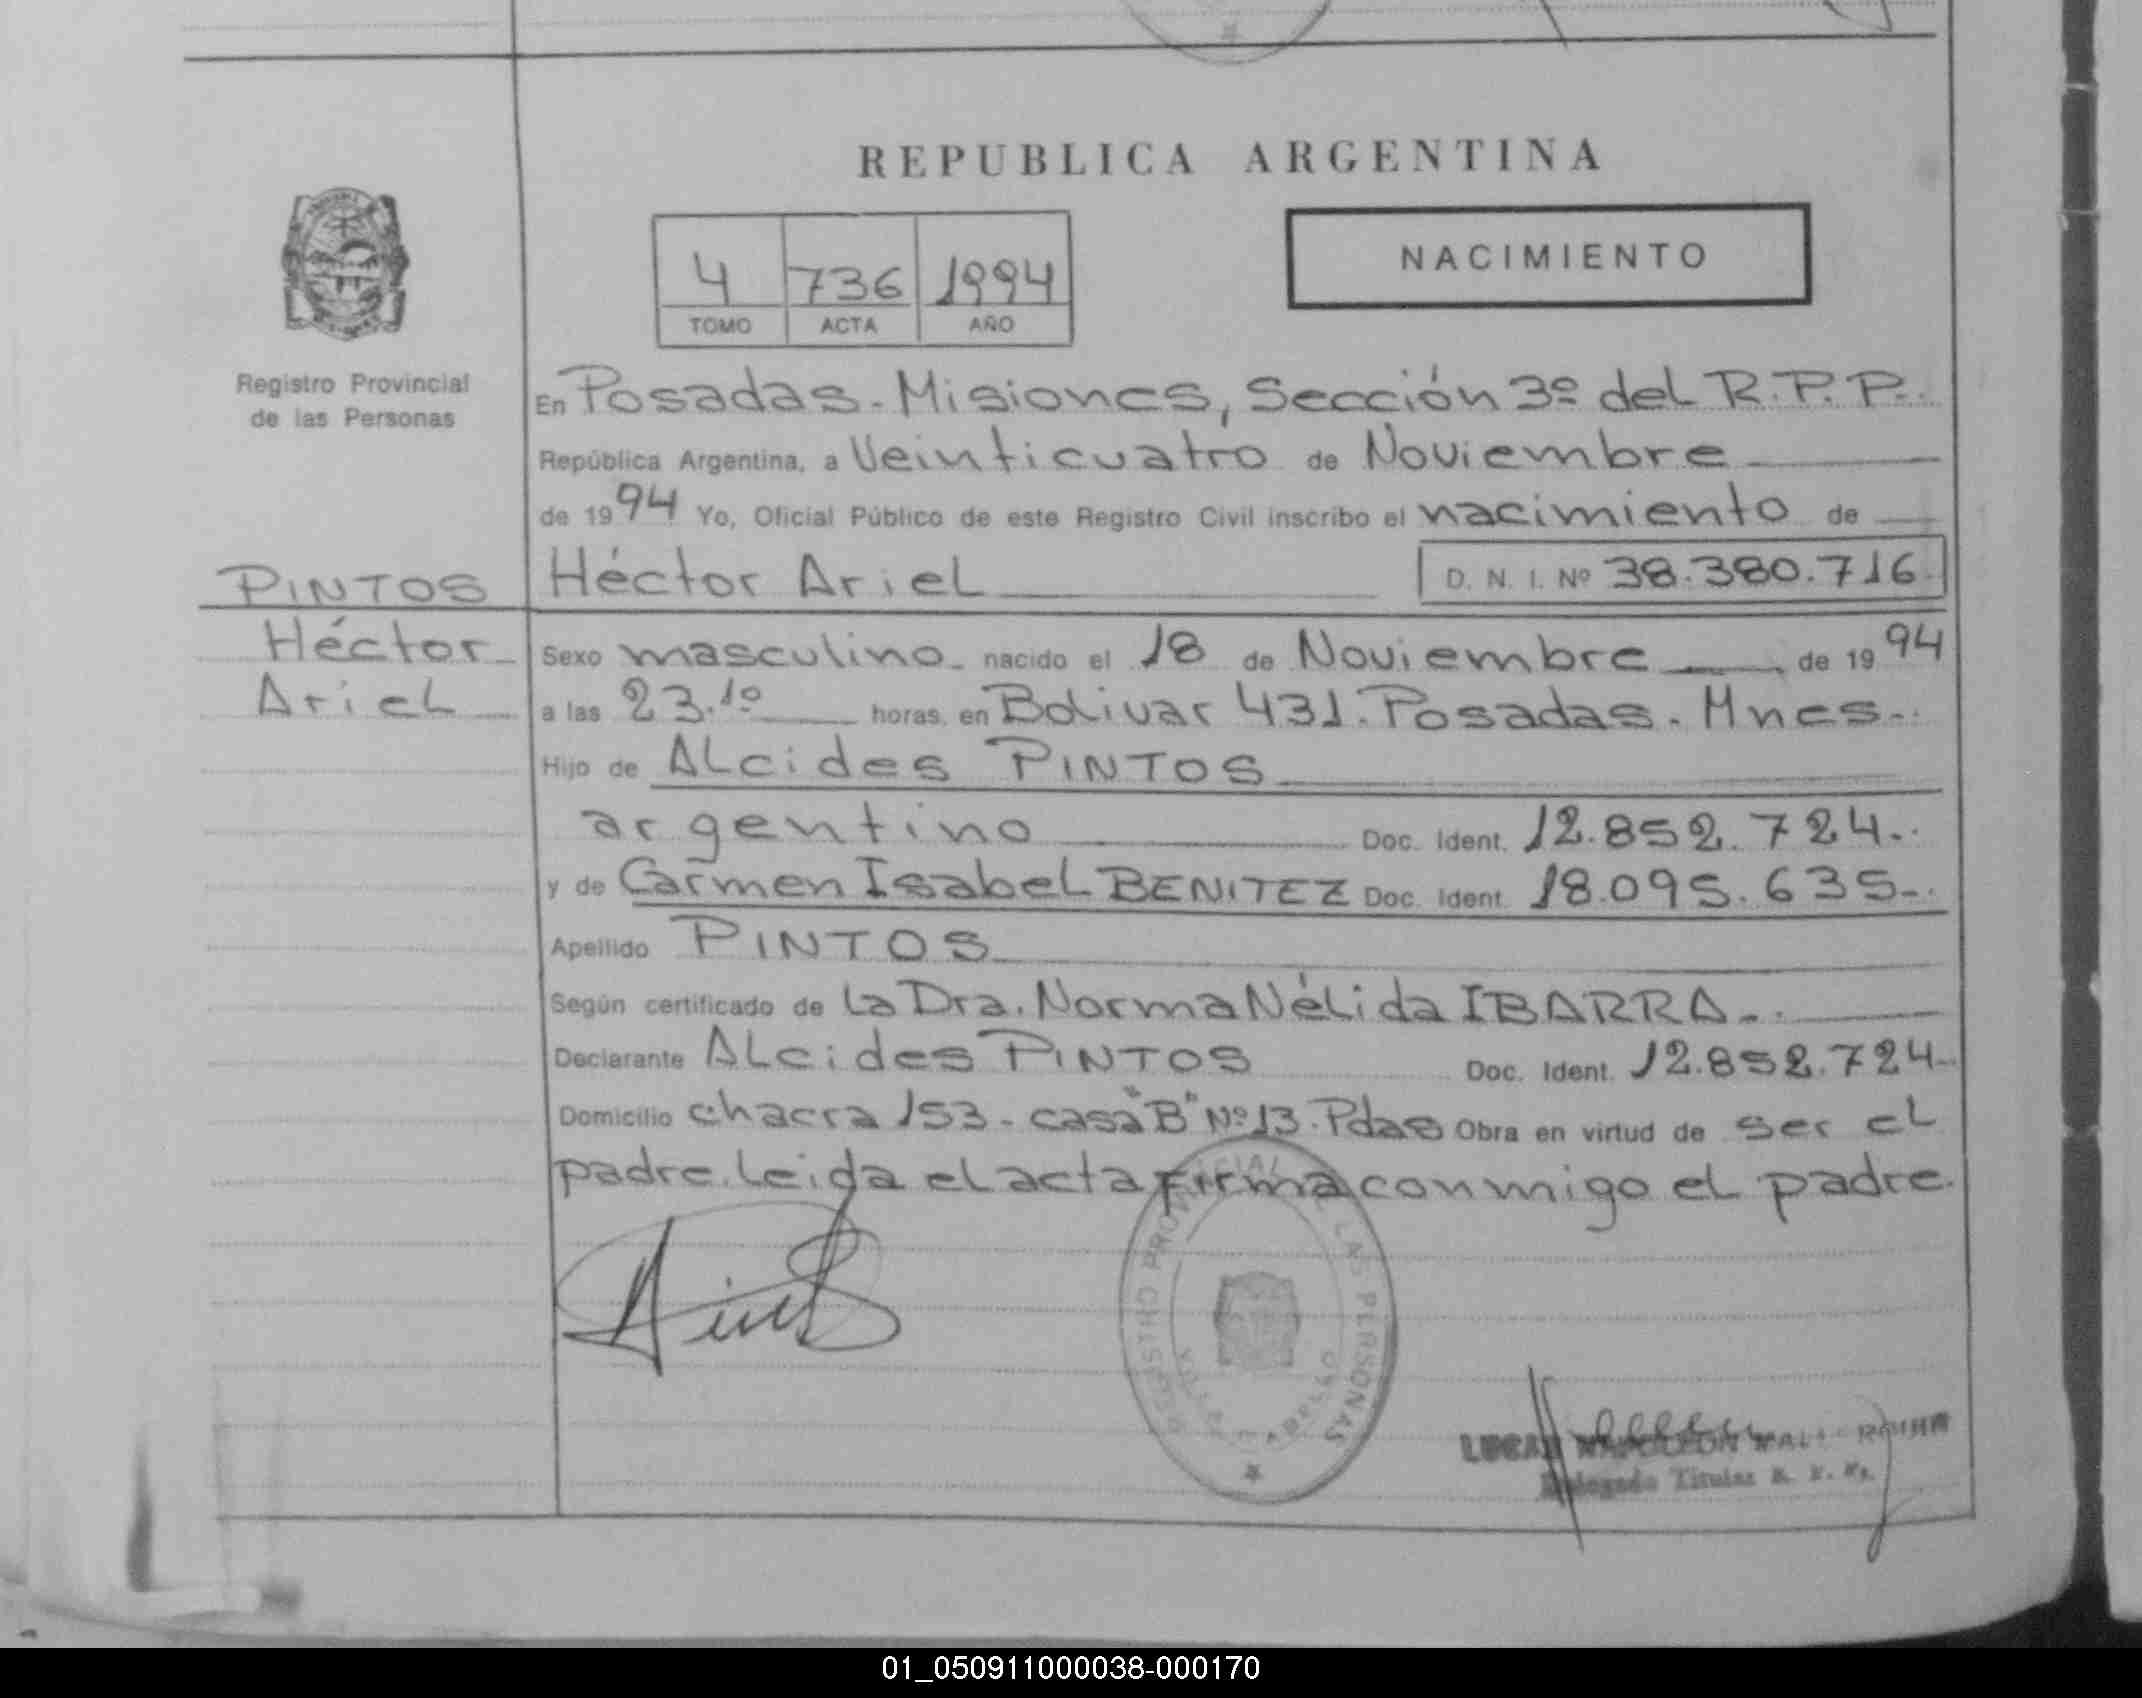 REPUBLICA ARGENTINA
4 736 1994
TOMO ACTA AÑO
NACIMIENTO
Registro Provincial
de las Personas
En Posadas-Misiones, Sección 3º del R.P.P.
República Argentina, a Veinticuatro de Noviembre
de 1994 Yo, Oficial Público de este Registro Civil inscribo el nacimiento de
PINTOS
Héctor
Ariel
Héctor Ariel D. N. I. Nº 38.380.716
Sexo masculino nacido el 18 de Noviembre de 1994
a las 23.10 horas, en Bolivar 431. Posadas. Mnes.
Hijo de Alcides PINTOS
argentino Doc. Ident. 12.852.724
y de Carmen Isabel BENITEZ Doc. Ident. 18.095.635
Apellido PINTOS
Según certificado de la Dra. Norma Nélida IBARRA
Declarante Alcides PINTOS Doc. Ident. 12.852.724
Domicilio chacra 153 - casa "B" Nº 13. Pdas Obra en virtud de ser el
padre. Leida el acta firma conmigo el padre.
REGISTRO PROVINCIAL DE LAS PERSONAS
Delegado Titular
01_050911000038-000170